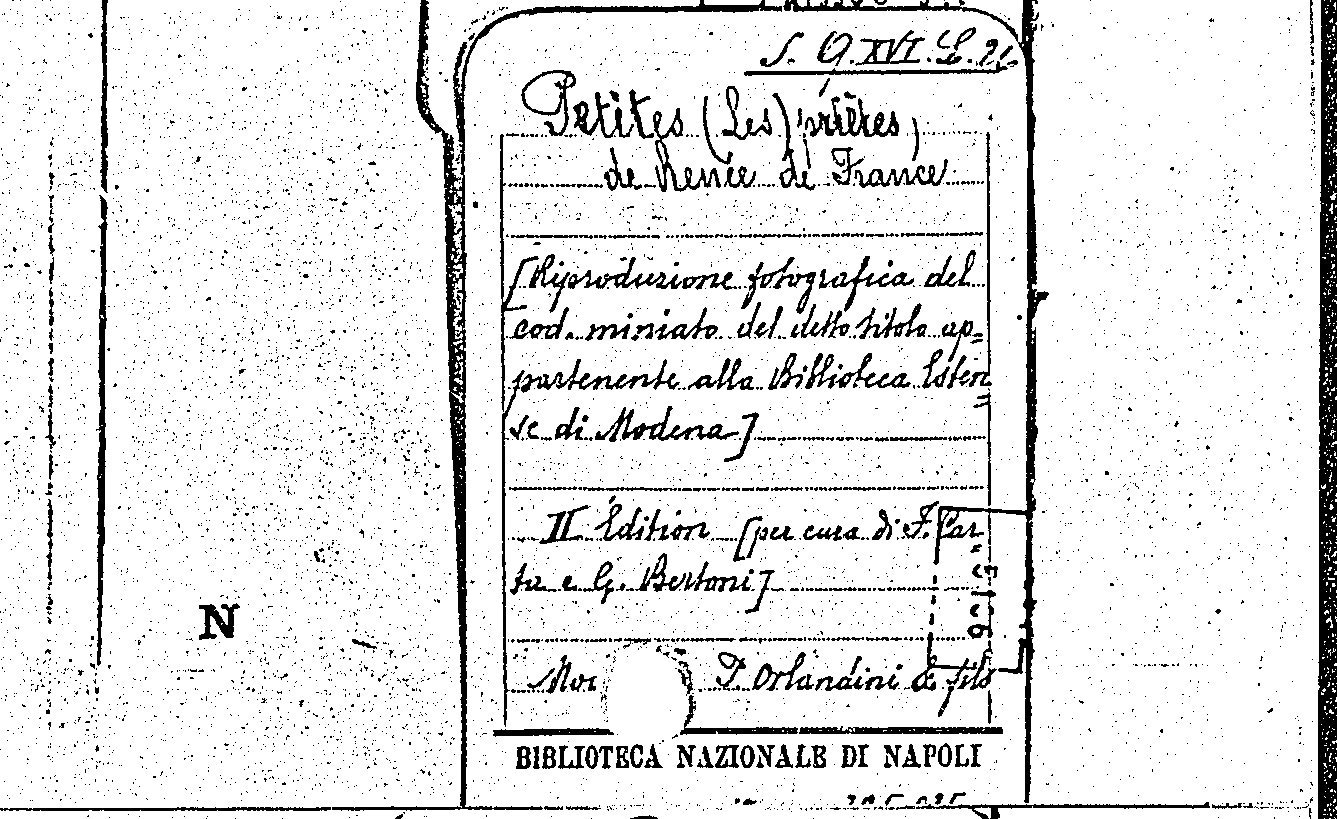 S. Q. XVI. L. 26
Petites (Les) prières,
de Renée de France
[Riproduzione fotografica del
cod. miniato del detto titolo ap=
partenente alla Biblioteca Esten=
se di Modena]
II Édition [per cura di F. Car=
ta e G. Bertoni]
F. Orlandini & fils
BIBLIOTECA NAZIONALE DI NAPOLI
N